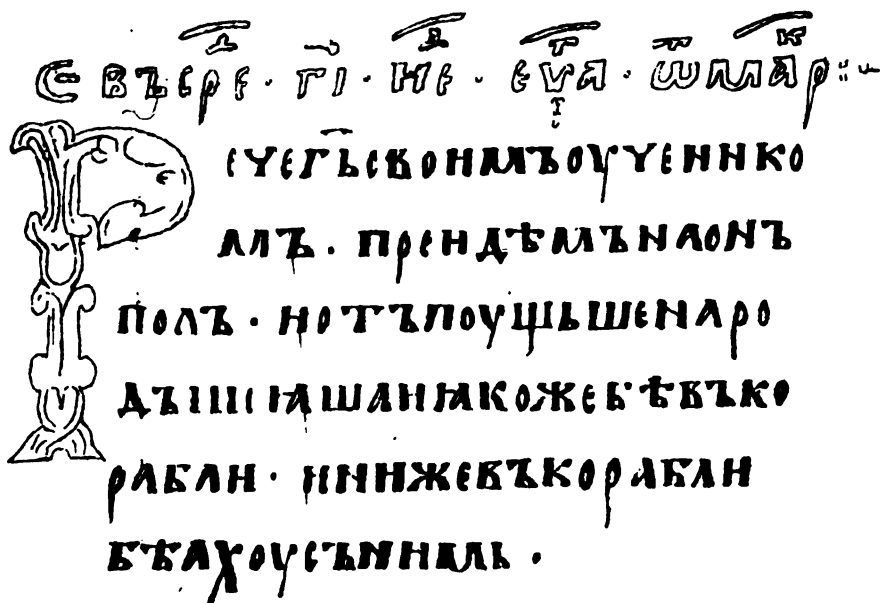 Є въ среⷣ · г҃і · неⷣ · еѵаⷢ · ѿ марⷦ :
Рече г҃ь своимъ оученико
мъ · преидѣмъ на онъ
полъ · и отъпоущьше наро
дъı поꙗша и ꙗкоже бѣ въ ко
рабли · и ини же въ корабли
бѣахоу съ нимь ·